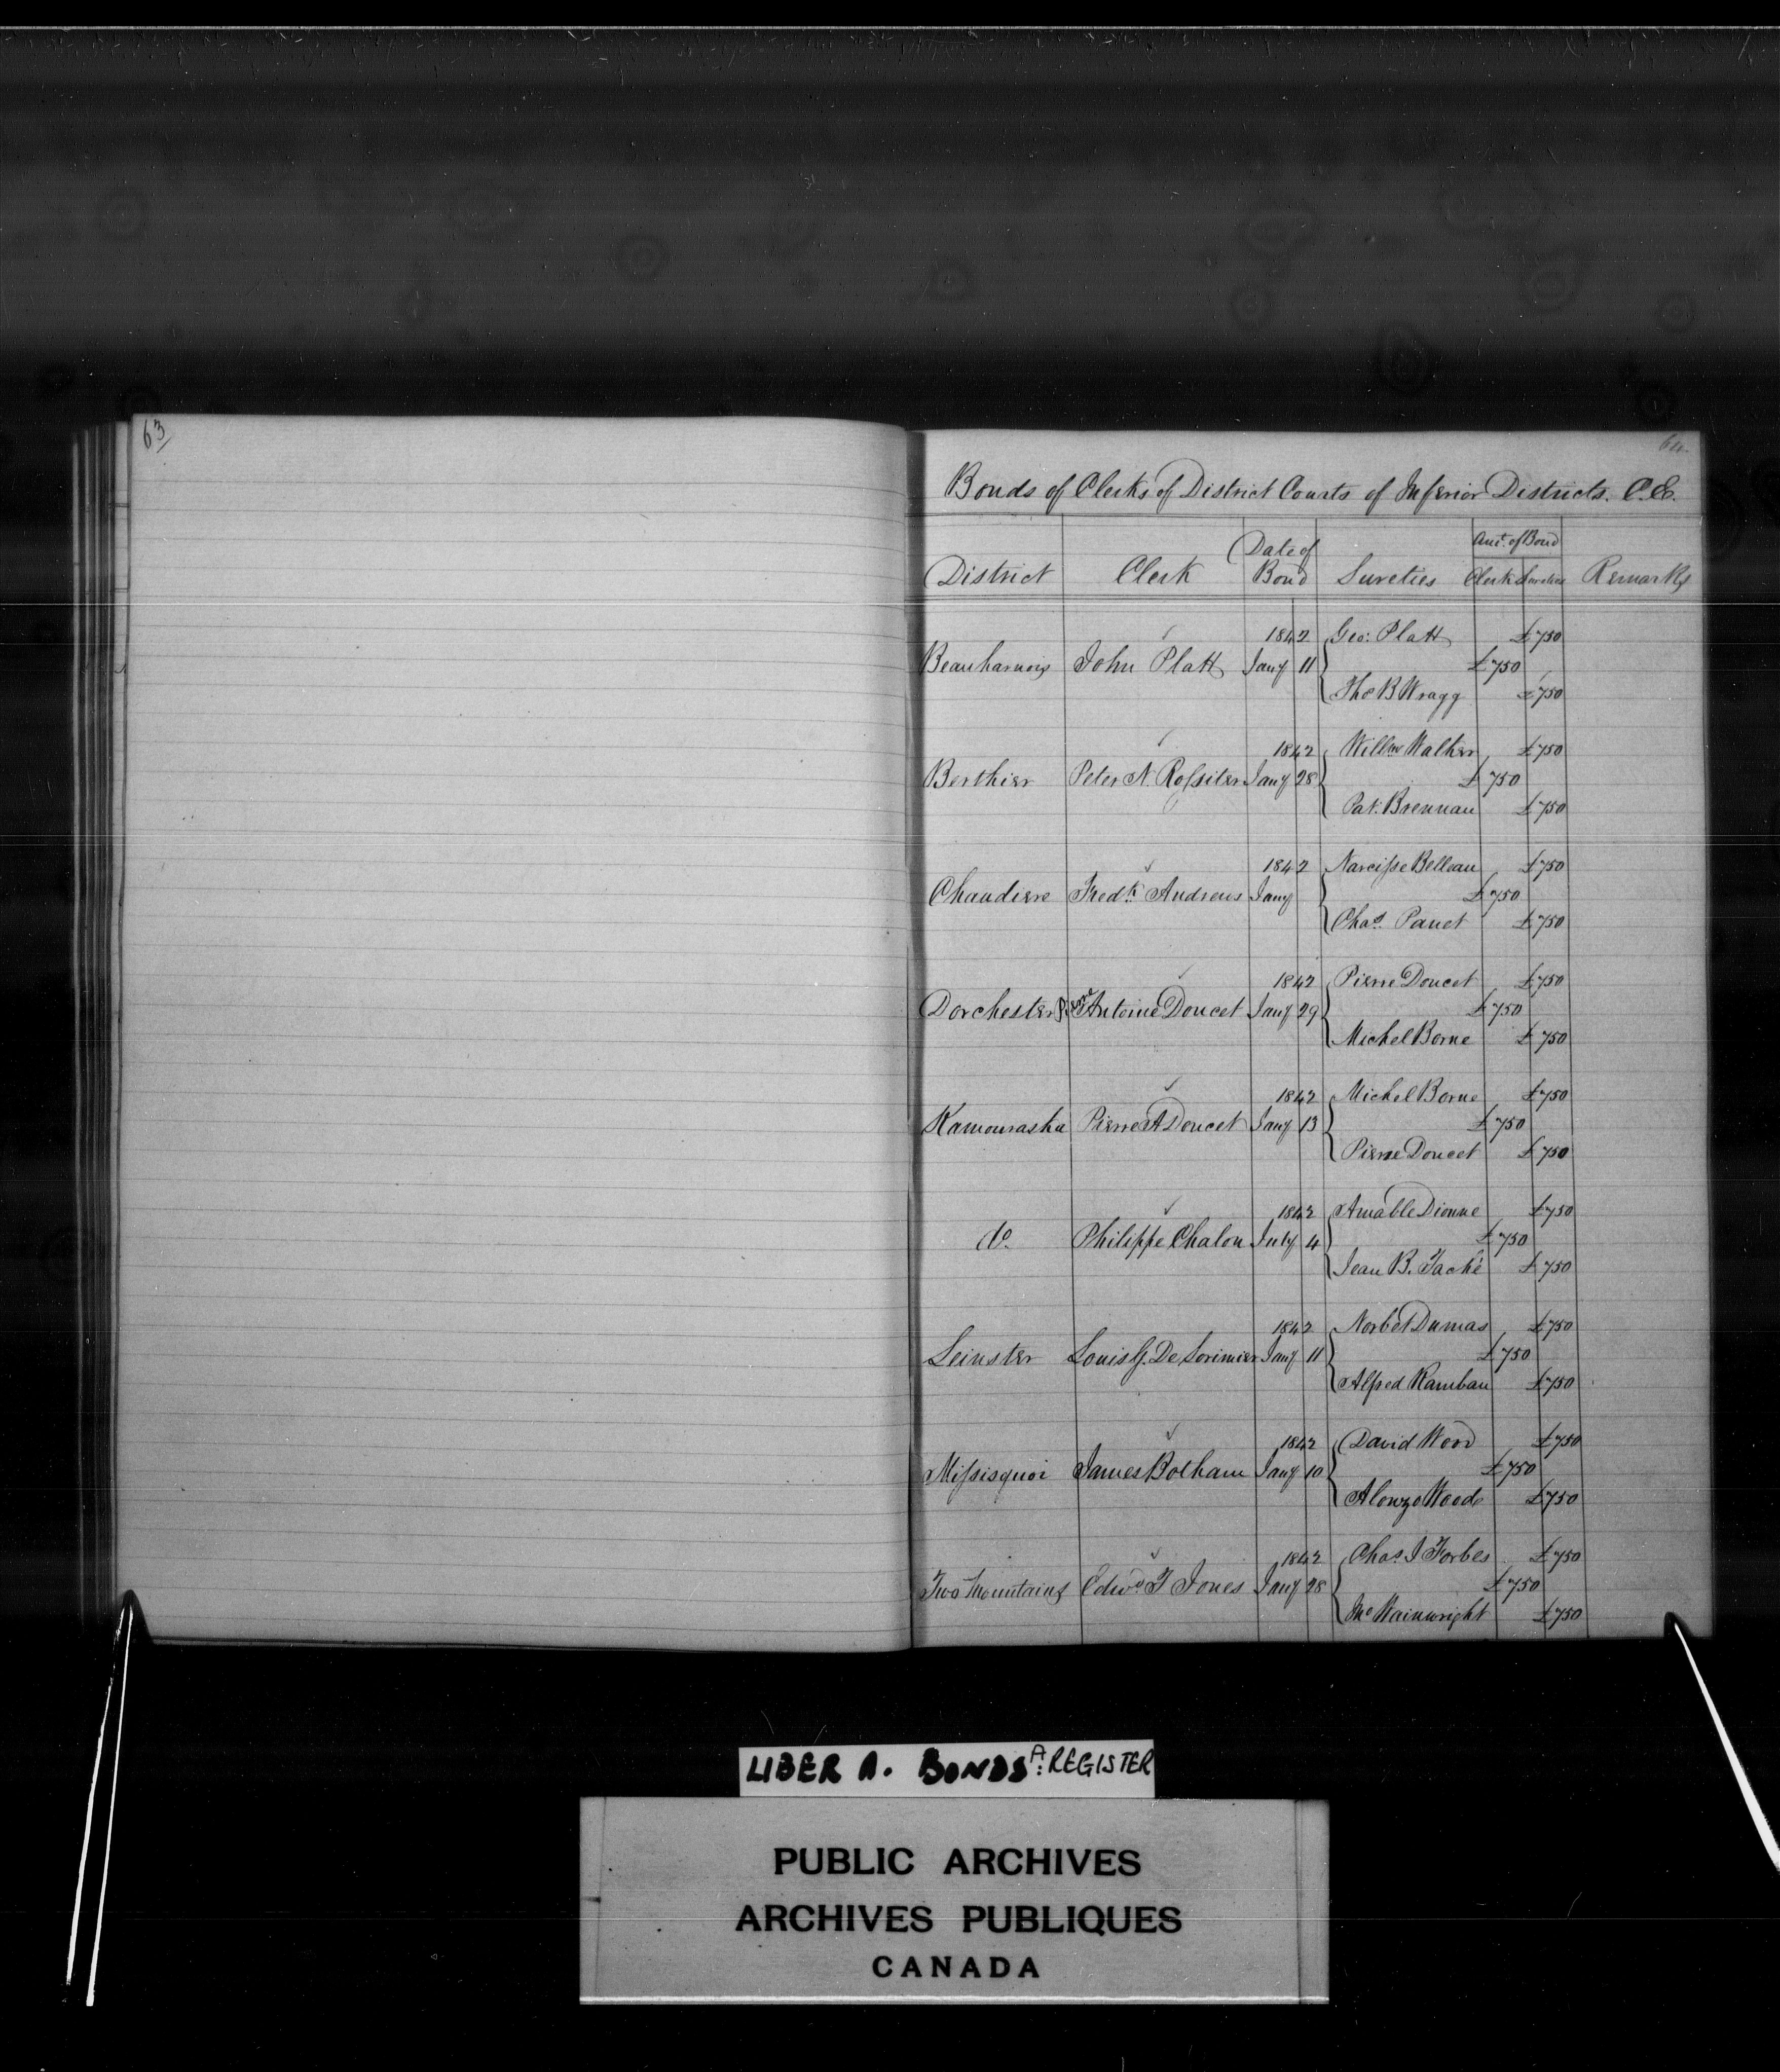 63
64
Bonds of Clerks of District Courts of Inferior Districts. C.E.
Amt. of Bond
Date of
District Clerk Bond Sureties Clerk Sureties Remarks
1842 Geo: Platt £750
Beauharnois John Platt Jany 11 £750
Thos B Wragg £750
1842 Willm Walker £750
Berthier Peter N. Rossiter Jany 28 £750
Pat. Brennan £750
1842 Narcisse Belleau £750
Chaudiere Fredk. Andrews Jany £750
Chas. Panet £750
1842 Pierre Doucet £750
Dorchester Pierre Antoine Doucet Jany 29 £750
Michel Borne £750
1842 Michel Borne £750
Kamouraska Pierre A Doucet Jany 13 £750
Pierre Doucet £750
1842 Amable Dionne £750
do. Philippe Chalou July 4 £750
Jean B. Taché £750
1842 Norbet Dumas £750
Leinster Louis G. De Lorimier Jany 11 £750
Alfred Rambau £750
1842 David Wood £750
Missisquoi James Botham Jany 10 £750
Alonzo Wood £750
1842 Chas. J Forbes £750
Two Mountains Edwd. T Jones Jany 28 £750
Jno Wainwright £750
LIBER A. BONDS A: REGISTER
PUBLIC ARCHIVES
ARCHIVES PUBLIQUES
CANADA